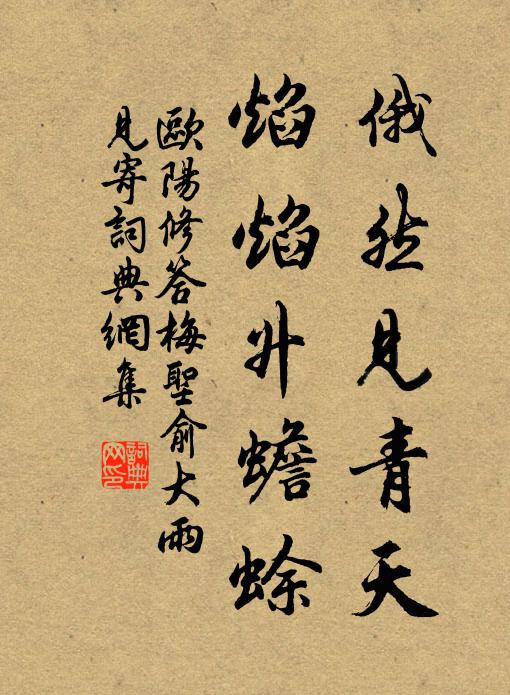 俄然見青天
焰焰升蟾蜍
歐陽修答梅聖俞大雨
見寄詞典網集
詞典
网印